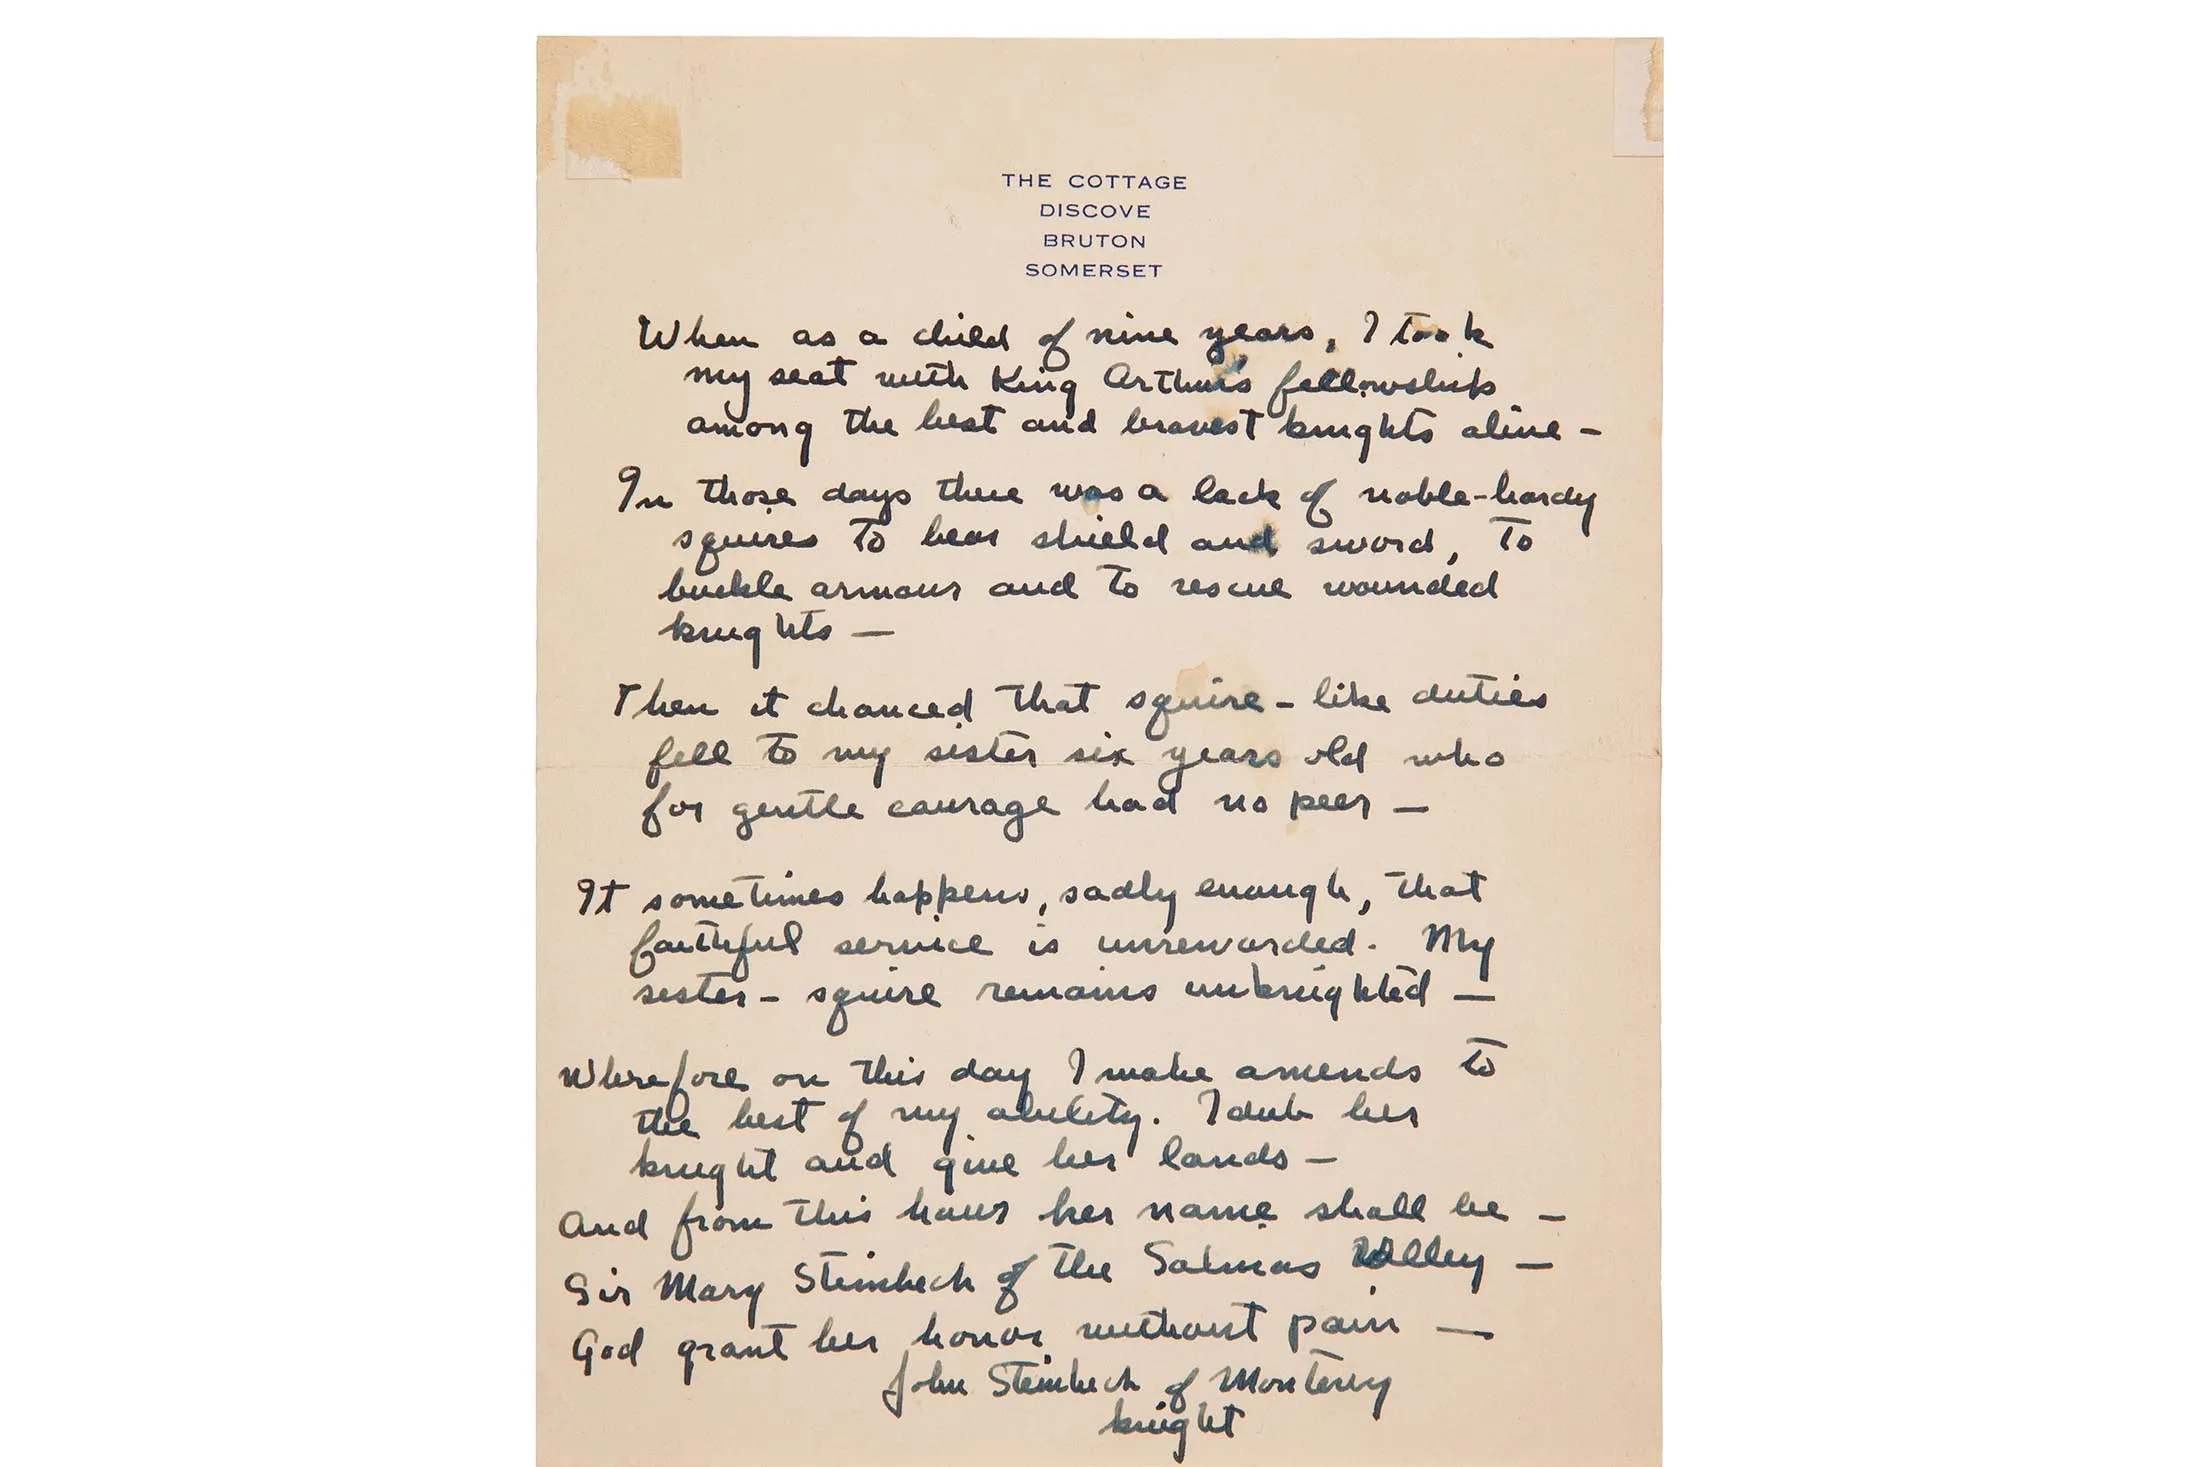 THE COTTAGE
DISCOVE
BRUTON
SOMERSET
When as a child of nine years, I took
my seat with King Arthur's fellowship
among the best and bravest knights alive —
In those days there was a lack of noble-hardy
squires to bear shield and sword, to
buckle armour and to rescue wounded
knights —
Then it chanced that squire-like duties
fell to my sister six years old who
for gentle courage had no peer —
It sometimes happens, sadly enough, that
faithful service is unrewarded. My
sister-squire remains unknighted —
Wherefore on this day I make amends to
the best of my ability. I dub her
knight and give her lands —
And from this hour her name shall be —
Sir Mary Steinbeck of the Salinas Valley —
God grant her honor without pain —
John Steinbeck of Monterey
knight